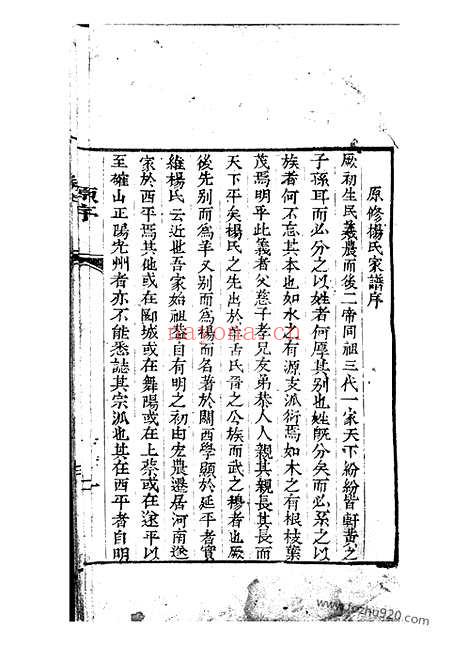 原修楊氏家譜序
厥初生民羲農而後二帝同祖三代一家天下紛紛皆軒黃之
子孫耳而必分之以姓者何厚其別也姓既分矣而必系之以
族者何不忘其本也如水之有源支派衍焉如木之有根枝葉
茂焉明乎此義者父慈子孝兄友弟恭人人親其親長其長而
天下平矣楊氏之先出於 古氏晉之公族而武之穆者也厥
後先別而為羊又別而為楊而名著於關西學顯於延平者實
維楊氏云近世吾家始祖 自有明之初由宏農遷居河南遂
家於西平焉其他或在郾城或在舞陽或在上蔡或在遂平以
至確山正陽光州者亦不能悉誌其宗派也其在西平者自明
原序
nayona.cn
www.fozhu920.com